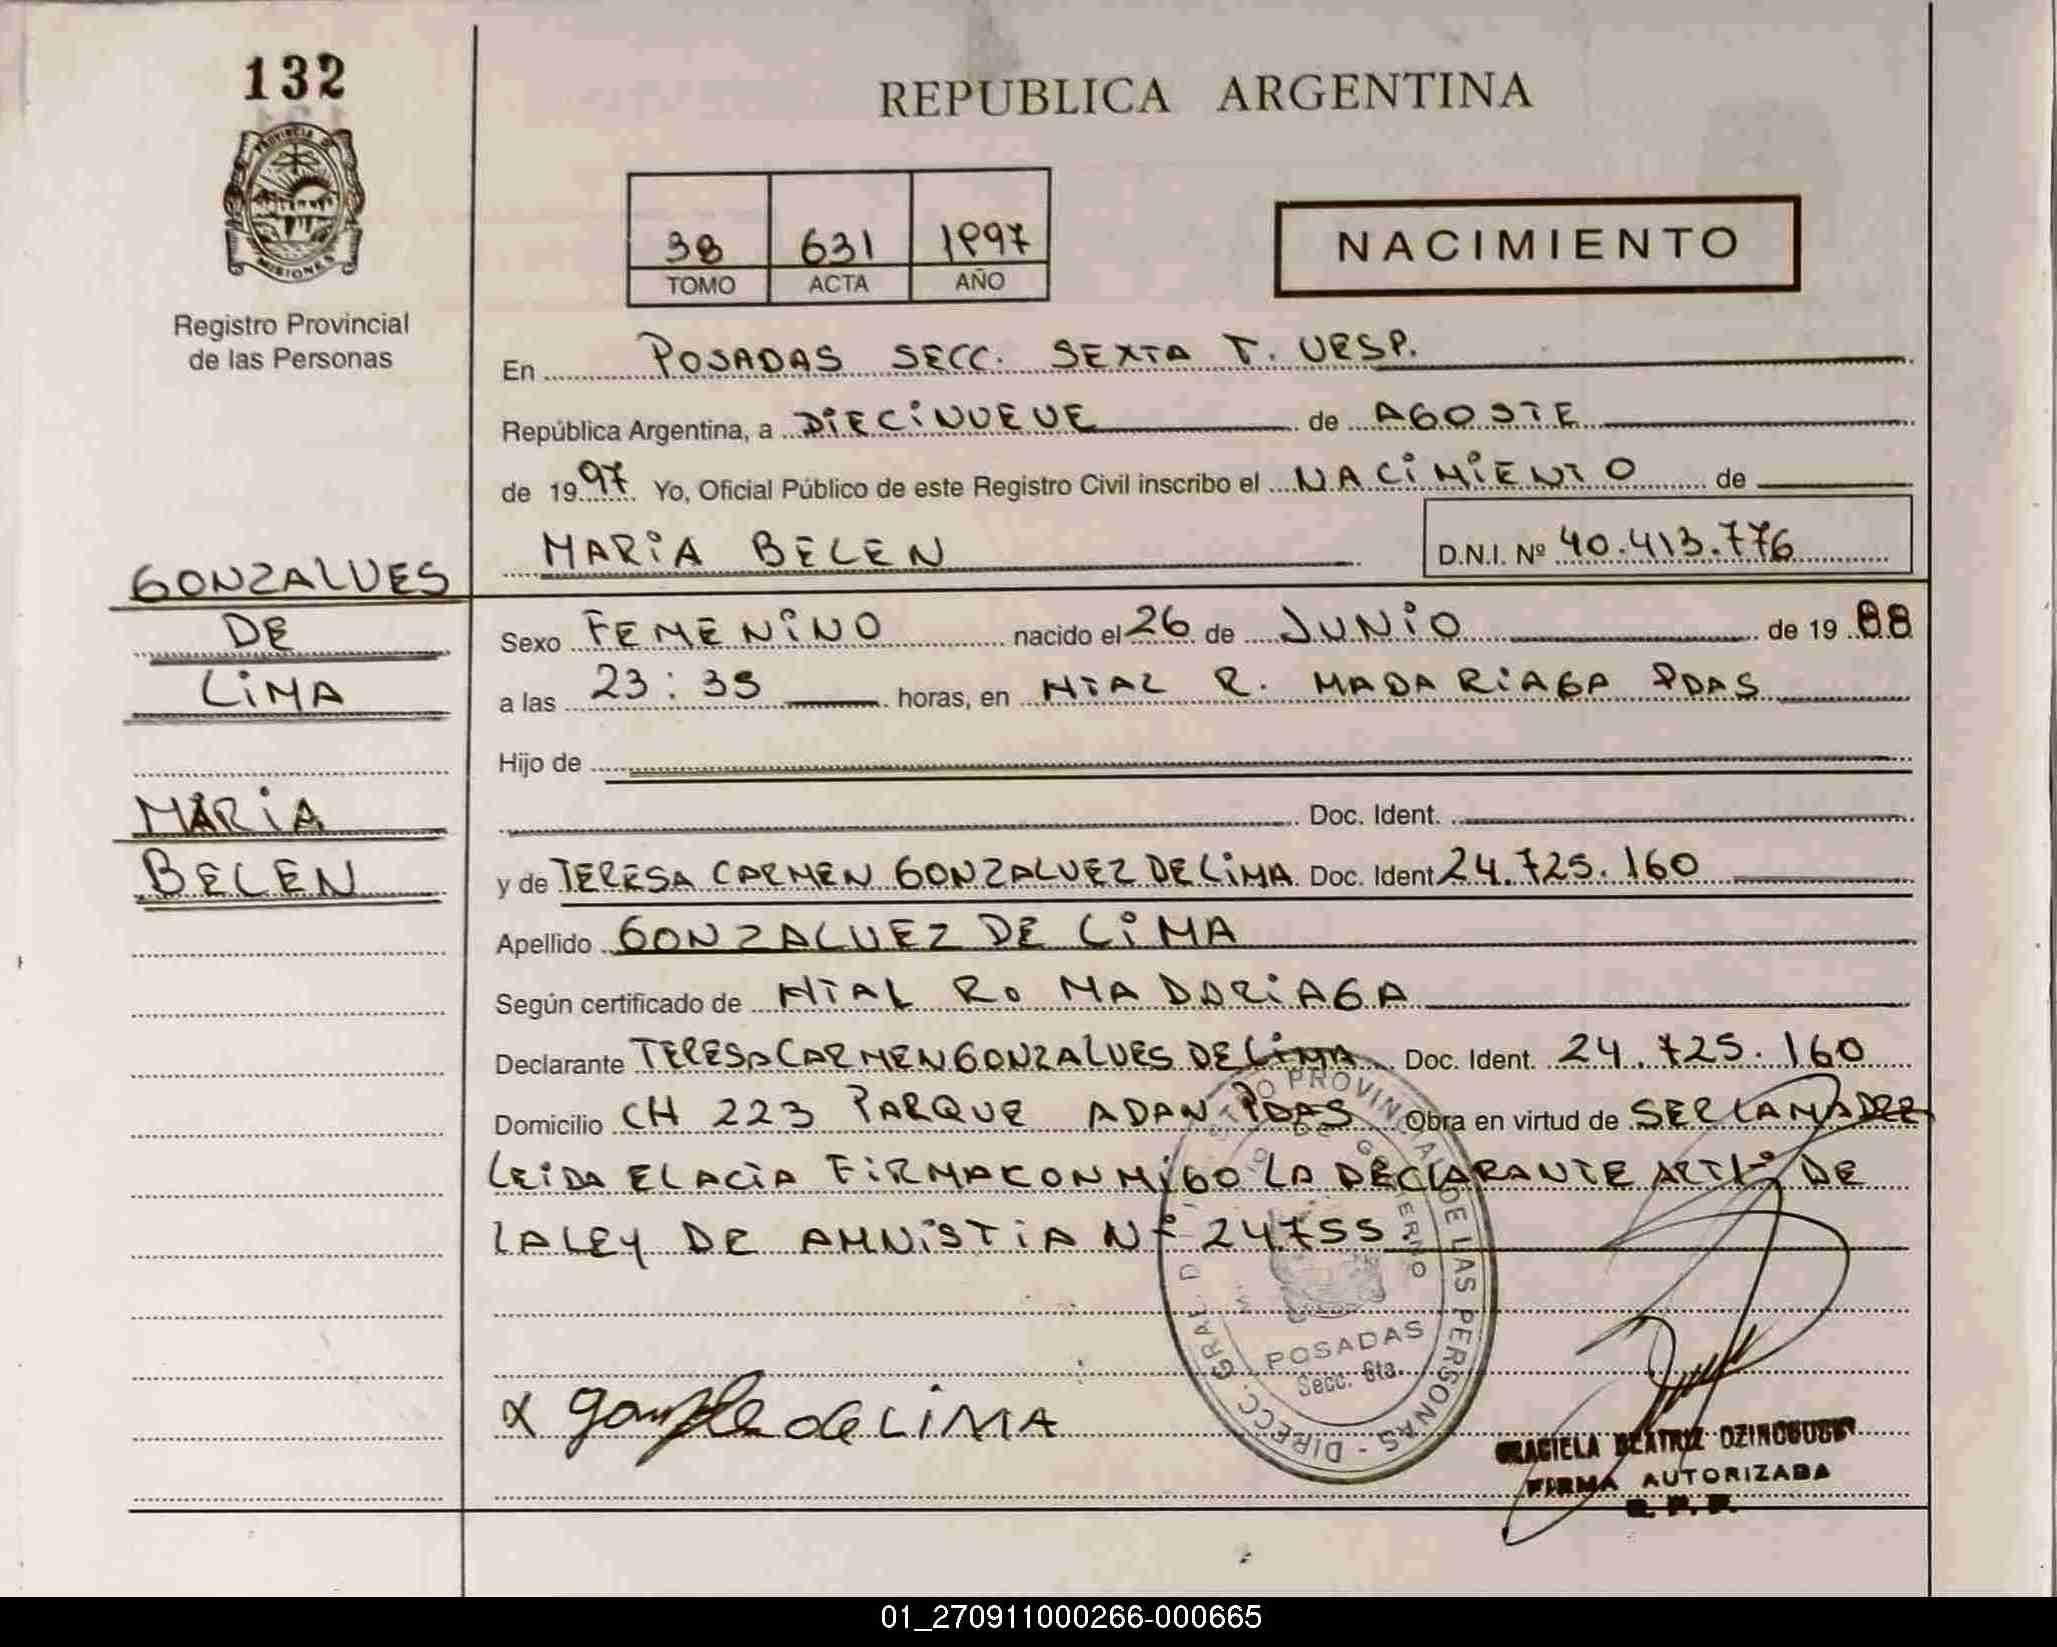 132
PROVINCIA DE
MISIONES
Registro Provincial
de las Personas
REPUBLICA ARGENTINA
38 631 1997
TOMO ACTA AÑO
NACIMIENTO
En POSADAS SECC. SEXTA T. VESP.
República Argentina, a DIECINUEVE de AGOSTE
de 1997 Yo, Oficial Público de este Registro Civil inscribo el NACIMIENTO de
MARIA BELEN D.N.I. Nº 40.413.776
GONZALVES
DE
LIMA
MARIA
BELEN
Sexo FEMENINO nacido el 26 de JUNIO de 19 88
a las 23:35 horas, en HTAL R. MADARIAGA PDAS
Hijo de
Doc. Ident.
y de TERESA CARMEN GONZALVEZ DE LIMA Doc. Ident 24.725.160
Apellido GONZALVEZ DE LIMA
Según certificado de HTAL R. MADARIAGA
Declarante TERESA CARMEN GONZALVES DE LIMA Doc. Ident. 24.725.160
Domicilio CH 223 PARQUE ADAN PDAS Obra en virtud de SER LA MADRE
LEIDA EL ACTA FIRMA CONMIGO LA DECLARANTE DE
LA LEY DE AMNISTIA Nº 24.755
DIRECC. GRAL. DE LAS PERSONAS
POSADAS
Secc. 6ta.
X de LIMA
GRACIELA BEATRIZ
FIRMA AUTORIZADA
01_270911000266-000665